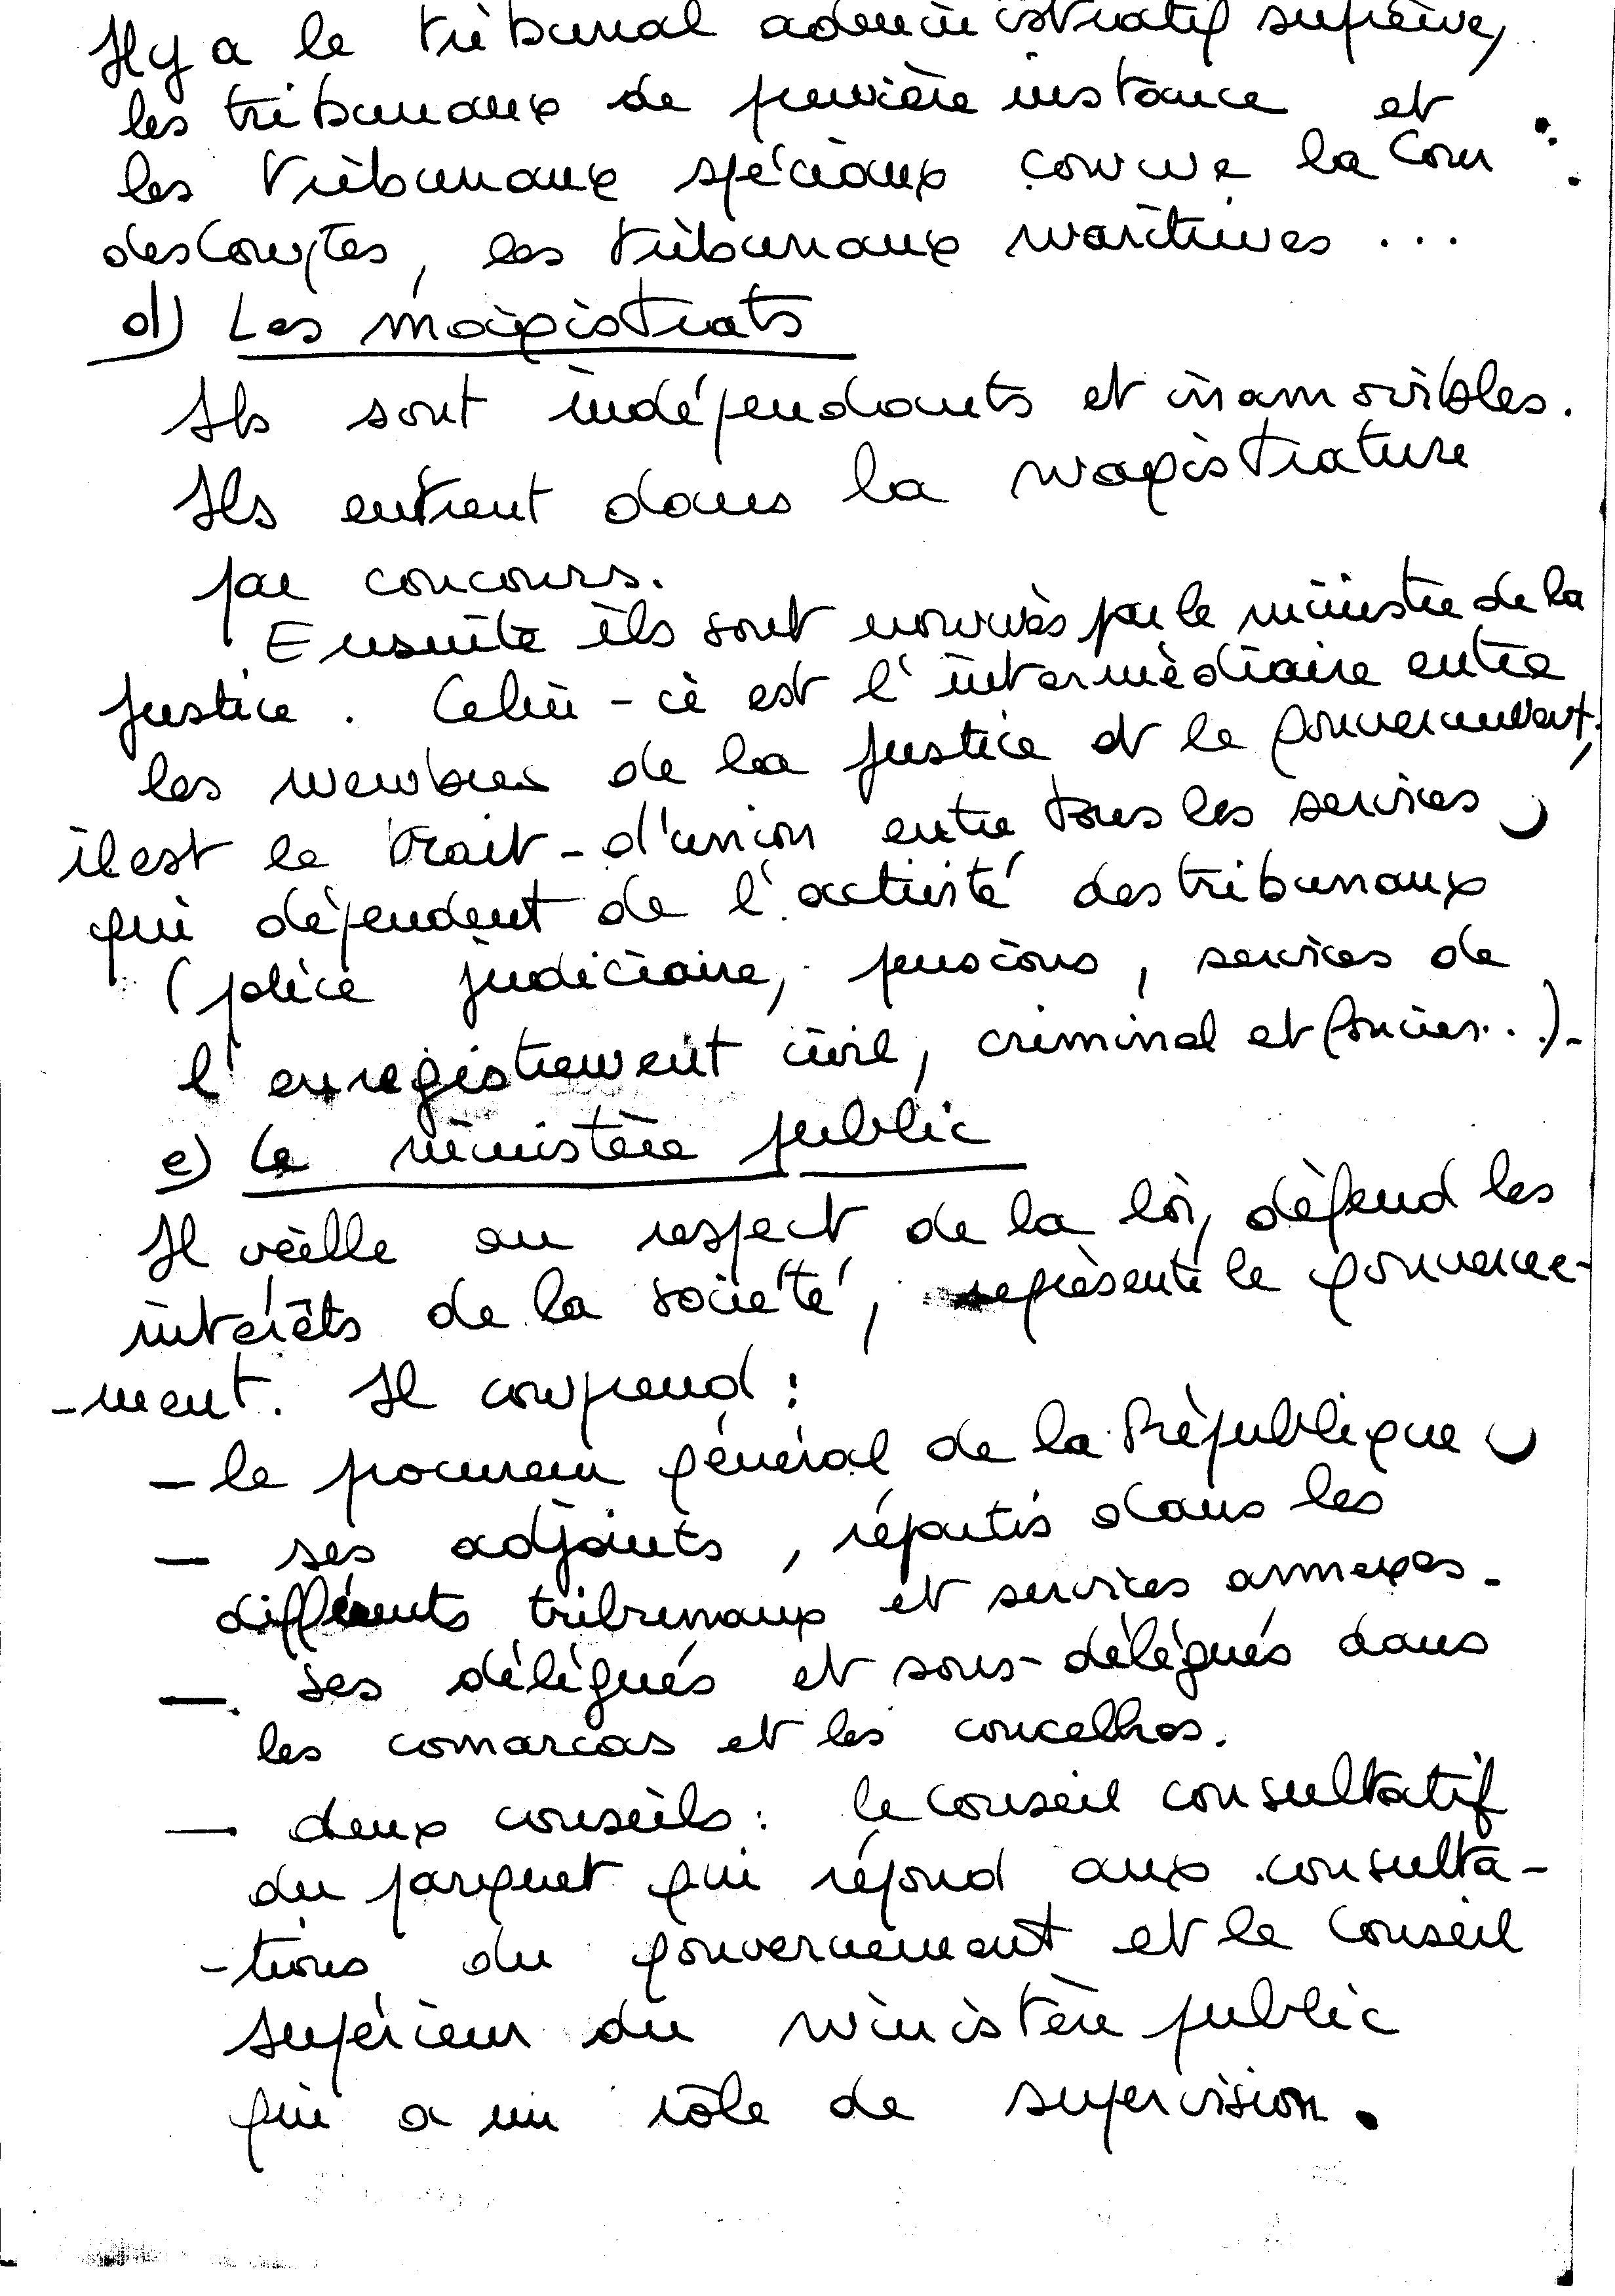 Il y a le tribunal administratif suprême,
les tribunaux de première instance et
les tribunaux spéciaux comme la Cour
des Comptes, les tribunaux maritimes ...
d) Les magistrats
Ils sont indépendants et inamovibles.
Ils entrent dans la magistrature
par concours.
Ensuite ils sont nommés par le ministre de la
justice. Celui-ci est l'intermédiaire entre
les membres de la justice et le gouvernement,
il est le trait-d'union entre tous les services
qui dépendent de l'activité des tribunaux
(police judiciaire, prisons, services de
l'enregistrement civil, criminel et foncier...).
e) Le ministère public
Il veille au respect de la loi, défend les
intérêts de la société, représente le gouverne-
-ment. Il comprend :
- le procureur général de la République
- ses adjoints, répartis dans les
différents tribunaux et services annexes.
- ses délégués et sous-délégués dans
les comarcas et les concelhos.
- deux conseils : le conseil consultatif
du parquet qui répond aux consulta-
-tions du gouvernement et le Conseil
supérieur du ministère public
qui a un rôle de supervision.